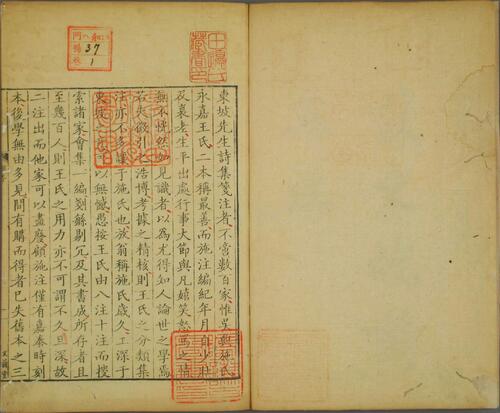 東坡先生詩集箋注者不啻數百家惟吳興施氏
永嘉王氏二本稱最善而施注編紀年月自少壯
及衰老生平出處行事大節與凡嬉笑怒罵之情
無不恍然如見識者以為尤得知人論世之學焉
若夫徵引之浩博考據之精核則王氏之分類集
注亦不多讓于施氏也放翁稱施氏歲久工深于
東坡之意
以無憾愚按王氏由八注十注而搜
索諸家會集一編剗餘剔冗及其書成所存者且
至幾百人則王氏之用力亦不可謂不久且深故
二注出而他家可以盡廢顧施注僅有嘉泰時刻
本後學無由多見間有購而得者已失舊本之三
37
1